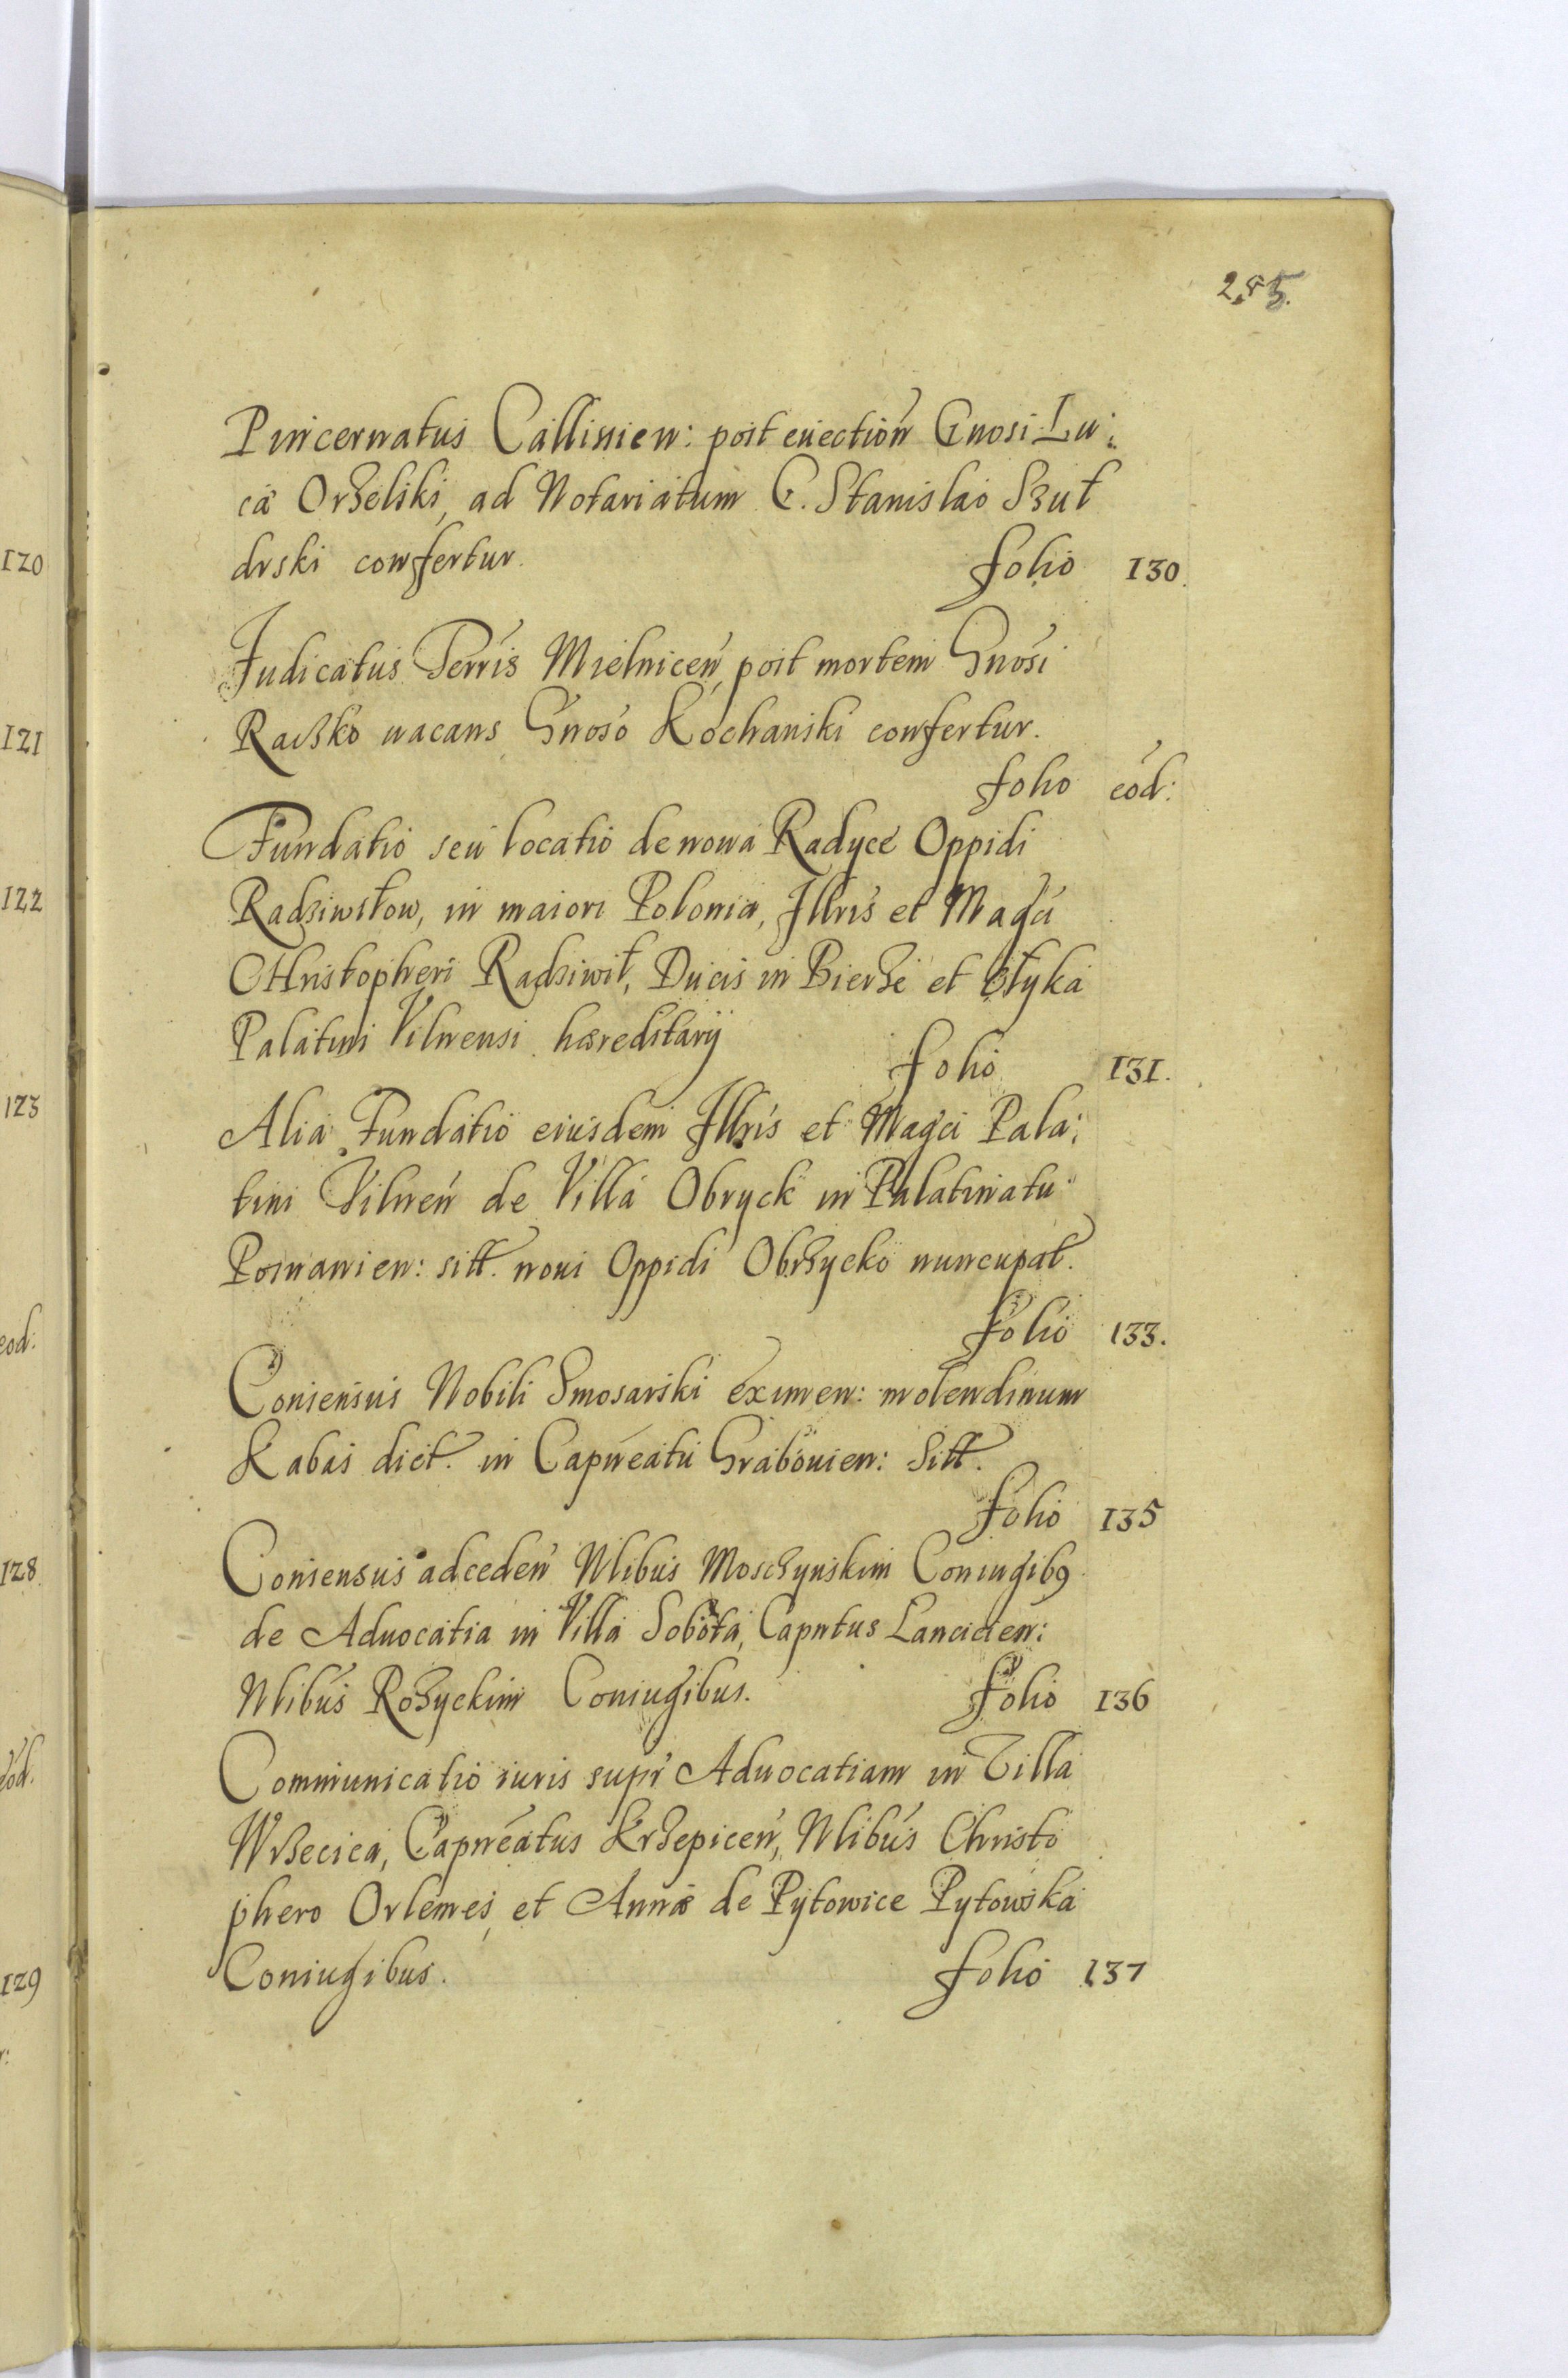 285.
Pincernatus Callissien: post euection Gnosi Lu:
cæ Orzelski, ad Notariatum G. Stanislao Szut
drski confertur. folio 130.
Judicatus Terris Mielnicen, post mortem Gnosi
Raczko uacans Gnoso Kochanski confertur.
folio eod:
Fundatio seu locatio de noua Radyce Oppidi
Radziwiłow, in maiori Polonia, Illris et Magci
Christopheri Radziwił, Ducis in Bierże et Ołyka
Palatini Vilnensi hæreditarij
folio 131.
Alia Fundatio eiusdem Illris et Magci Pala:
tini Vilnen de Villa Obryck in Palatinatu
Posnanien: sitt. noui Oppidi Obrzycko nuncupat.
folio 133.
Consensus Nobili Smosarski eximen: molendinum
Kabas dict. in Capneatu Grabouien: Sitt.
folio 135
Consensus ad ceden Nlibus Moschynskim Coniugibq
de Aduocatia in Villa Sobota, Capntus Lancicien:
Nlibus Rozyckim Coniugibus. folio 136
Communicatio iuris supr Aduocatiam in Villa
Wrzecica, Capneatus Krzepicen, Nlibus Christo
phero Orlemes, et Annæ de Pytowice Pytowska
Coniugibus. folio 137
120
121
122
123
eod:
128
eod.
129